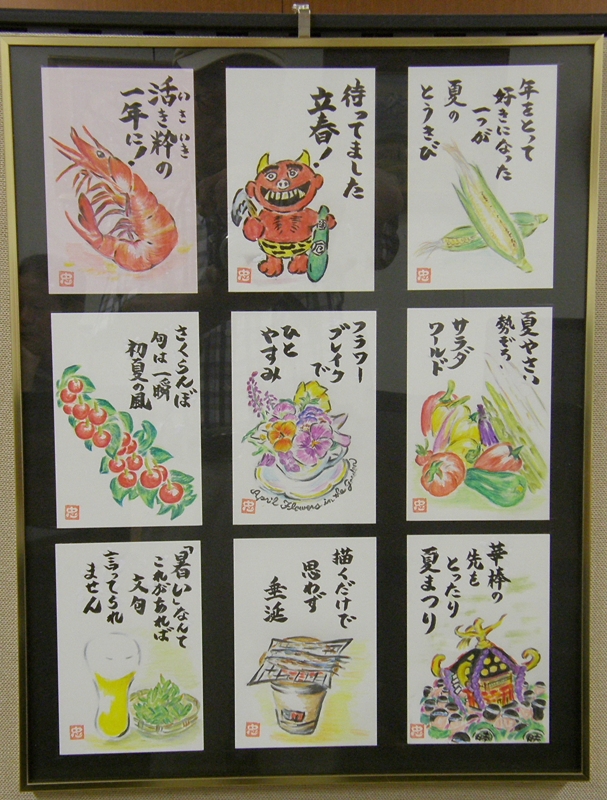 いきいき
活き粋の
一年に!
忠
待ってました
立春!
忠
年をとって
好きになった
一つが
夏の
とうきび
忠
さくらんぼ
旬は一瞬
初夏の風
忠
フラワー
ブレイクで
ひと
やすみ
April Flowers in
忠
夏やさい
勢ぞろい
サラダ
ワールド
忠
「暑い」なんて
これがあれば
文句
言ってられ
ません
忠
描くだけで
思わず
垂延
忠
華棒の
先を
とったり
夏まつり
忠